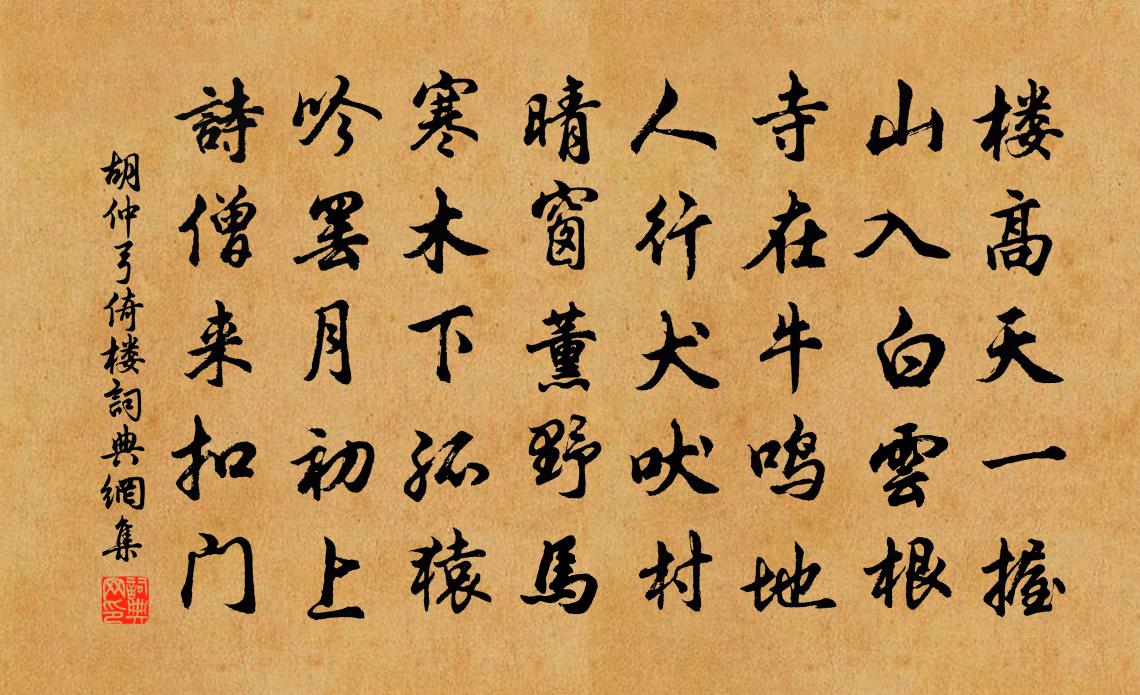 楼高天一握
山入白雲根
寺在牛鸣地
人行犬吠村
晴窗薰野馬
寒木下孤猿
吟罢月初上
詩僧来扣门
胡仲弓倚楼詞典網集
詞典网印